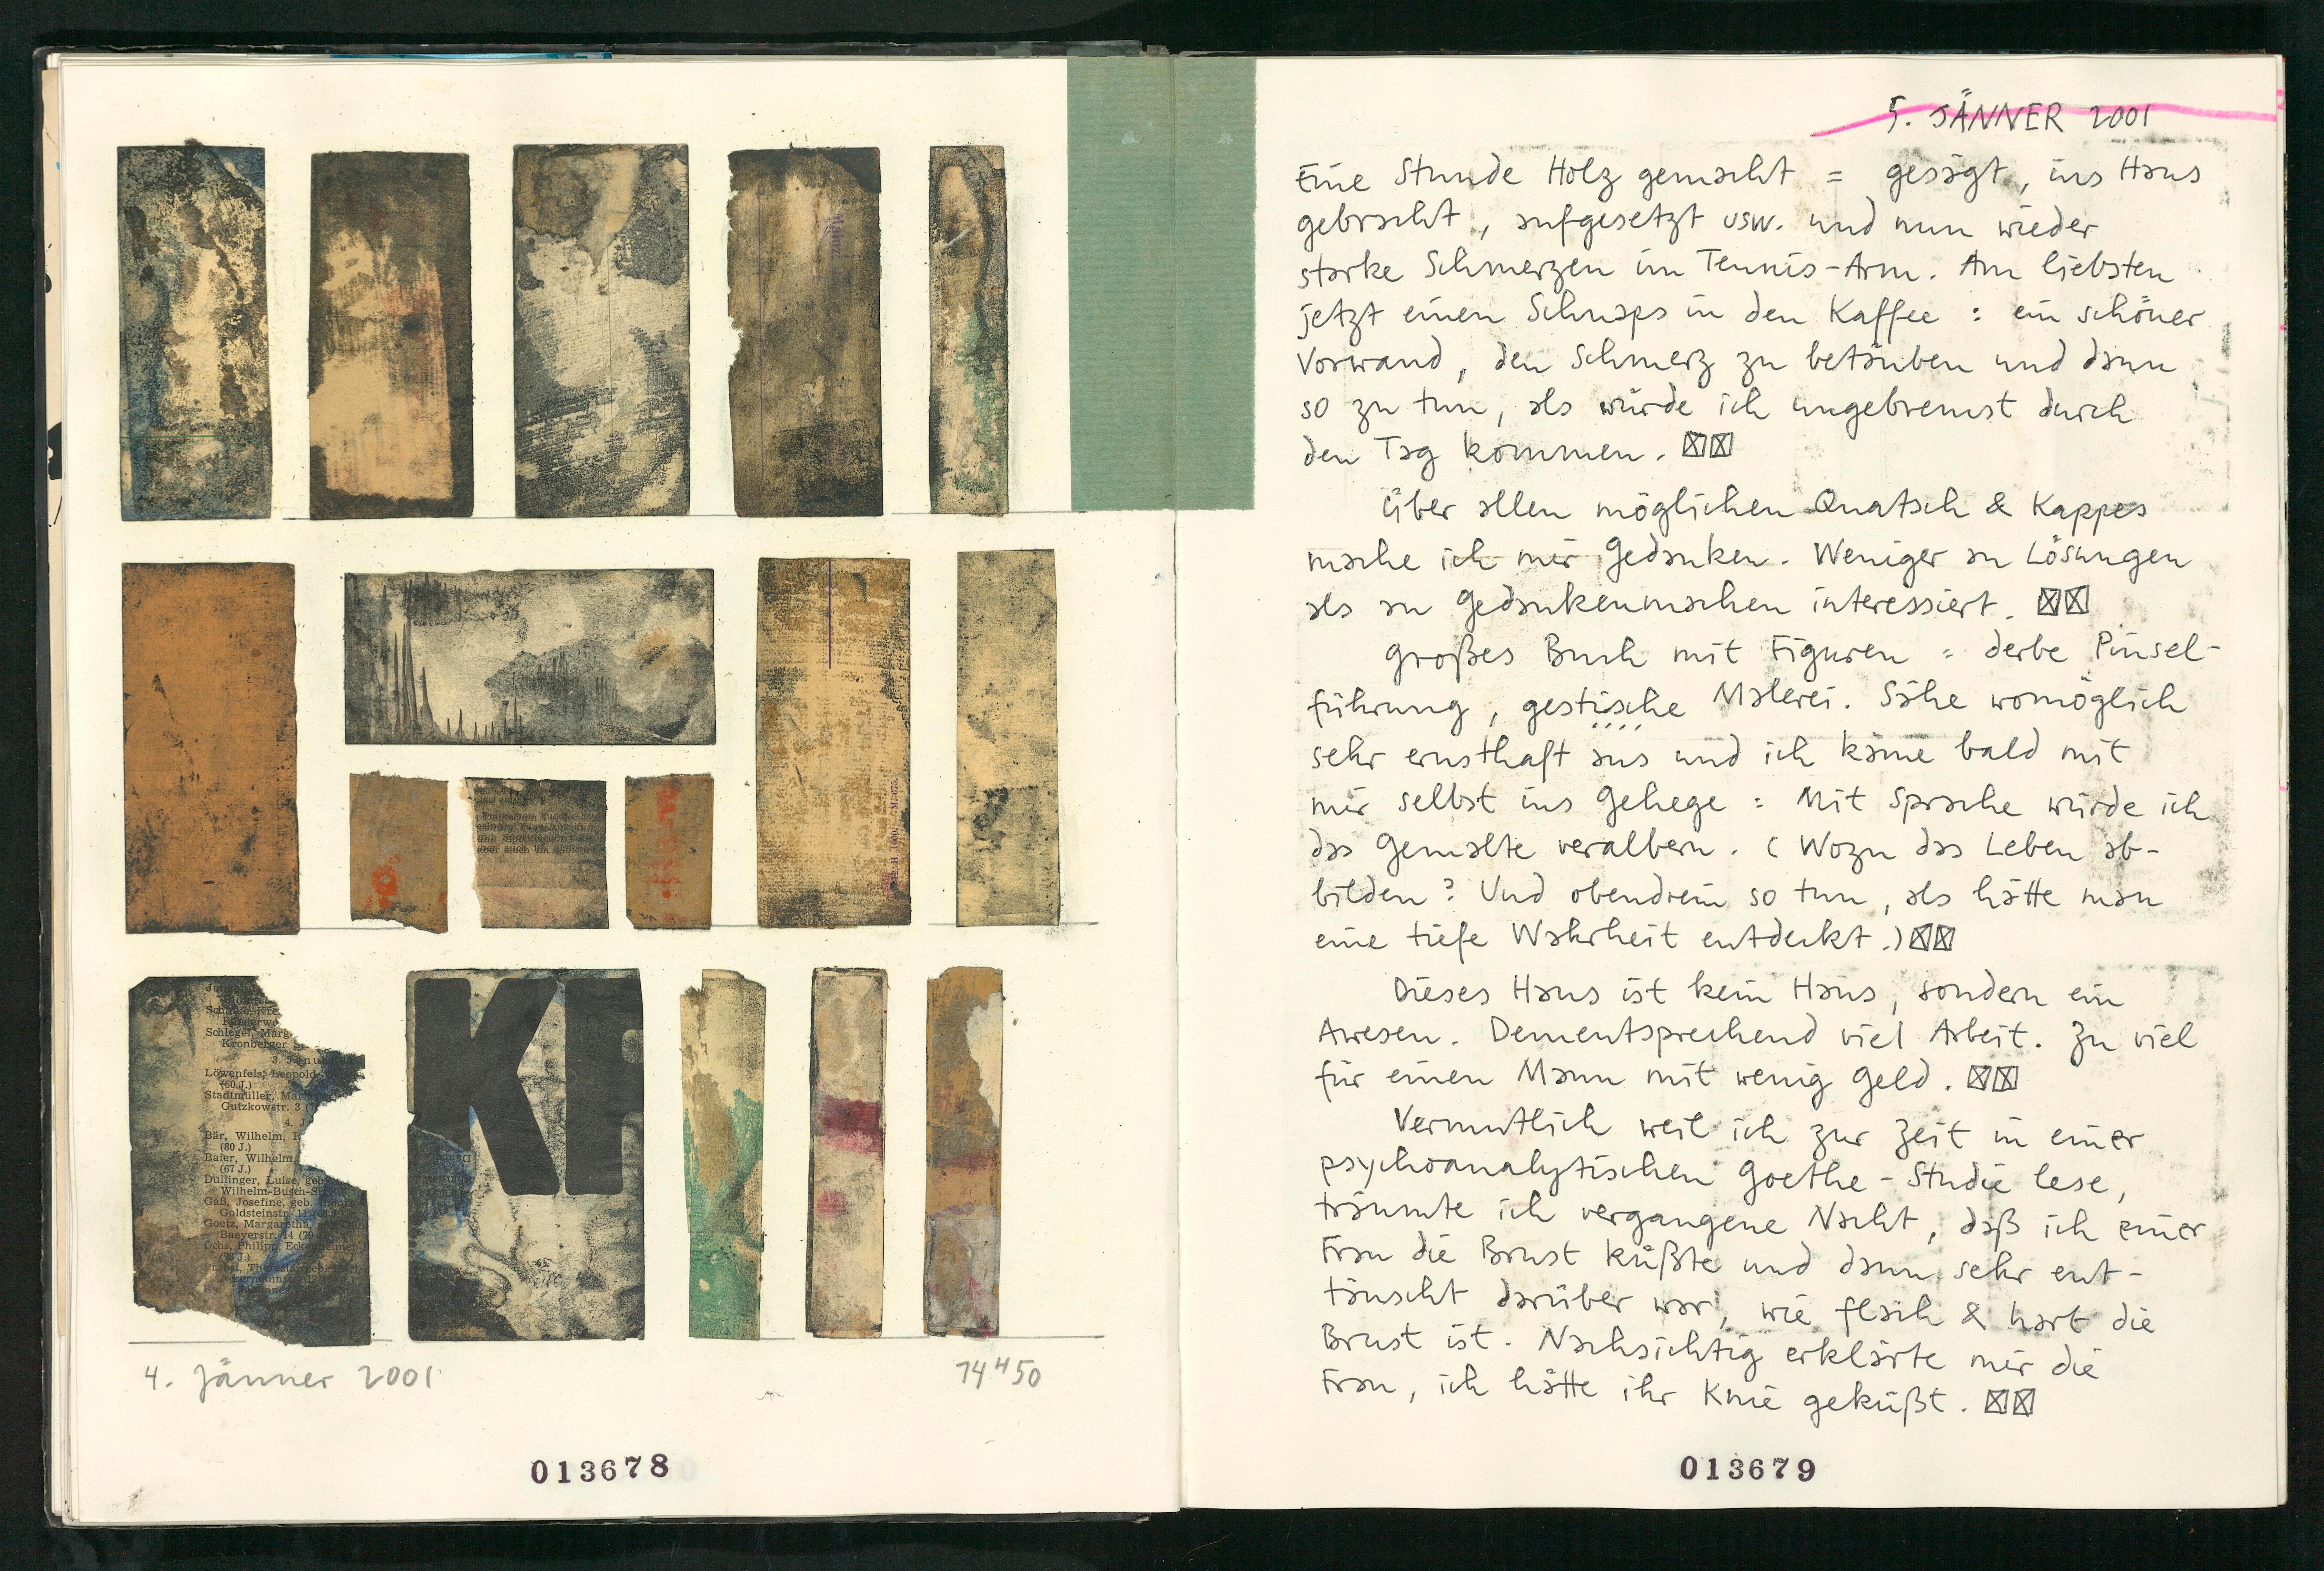 Schlegel, Marg.
Kronberger S
Löwenfels, Leopold
(60 J.)
Stadtmüller, Mari
Gutzkowstr. 3
4. J
Bär, Wilhelm,
(80 J.)
Baier, Wilhelm,
(67 J.)
Dullinger, Luise, geb
Wilhelm-Busch-S
Gaß, Josefine, geb.
Goldsteinstr. 11
Goetz, Margaretha,
Baeyerstr. 14 (79
Ochs, Philipp, Eckenheimer
KI
4. Jänner 2001
14 H 50
013678
5. JÄNNER 2001
Eine Stunde Holz gemacht = gesägt, ins Haus
gebracht, aufgesetzt usw. und nun wieder
starke Schmerzen im Tennis-Arm. Am liebsten
jetzt einen Schnaps in den Kaffee : ein schöner
Vorwand, den Schmerz zu betäuben und dann
so zu tun, als würde ich ungebremst durch
den Tag kommen. ☒☒
Über allen möglichen Quatsch & Kappes
mache ich mir Gedanken. Weniger an Lösungen
als an Gedankenmachen interessiert. ☒☒
Großes Buch mit Figuren = derbe Pinsel-
führung, gestische Malerei. Sähe womöglich
sehr ernsthaft aus und ich käme bald mit
mir selbst ins Gehege : Mit Sprache würde ich
das Gemalte veralbern. (Wozu das Leben ab-
bilden? Und obendrein so tun, als hätte man
eine tiefe Wahrheit entdeckt.) ☒☒
Dieses Haus ist kein Haus, sondern ein
Awesen. Dementsprechend viel Arbeit. Zu viel
für einen Mann mit wenig Geld. ☒☒
Vermutlich weil ich zur Zeit in einer
psychoanalytischen Goethe-Studie lese,
träumte ich vergangene Nacht, daß ich einer
Frau die Brust küßte und dann sehr ent-
täuscht darüber war, wie flach & hart die
Brust ist. Nachsichtig erklärte mir die
Frau, ich hätte ihr Knie geküßt. ☒☒
013679